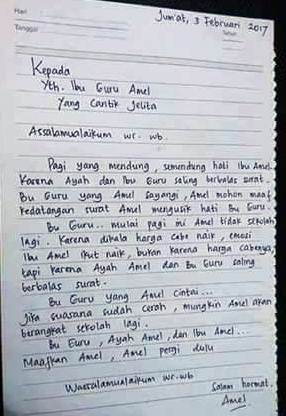 Hari
Tanggal
Jum'at, 3 Februari 2017
Kepada
Yth. Ibu Guru Amel
Yang Cantik Jelita
Assalamualaikum wr. wb.
Pagi yang mendung, semendung hati Ibu Amel
Karena Ayah dan Ibu Guru saling berbalas surat.
Bu Guru yang Amel sayangi, Amel mohon maaf
kedatangan surat Amel mengusik hati Bu Guru.
Bu Guru.. mulai pagi ini Amel tidak sekolah
lagi. Karena dikala harga cabe naik, emosi
Ibu Amel ikut naik, bukan karena harga cabenya,
tapi karena Ayah Amel dan Bu Guru saling
berbalas surat.
Bu Guru yang Amel cintai...
Jika suasana sudah cerah, mungkin Amel akan
berangkat sekolah lagi.
Bu Guru, Ayah Amel, dan Ibu Amel...
Maafkan Amel, Amel pergi dulu
Wassalamualaikum wr-wb
Salam hormat,
Amel